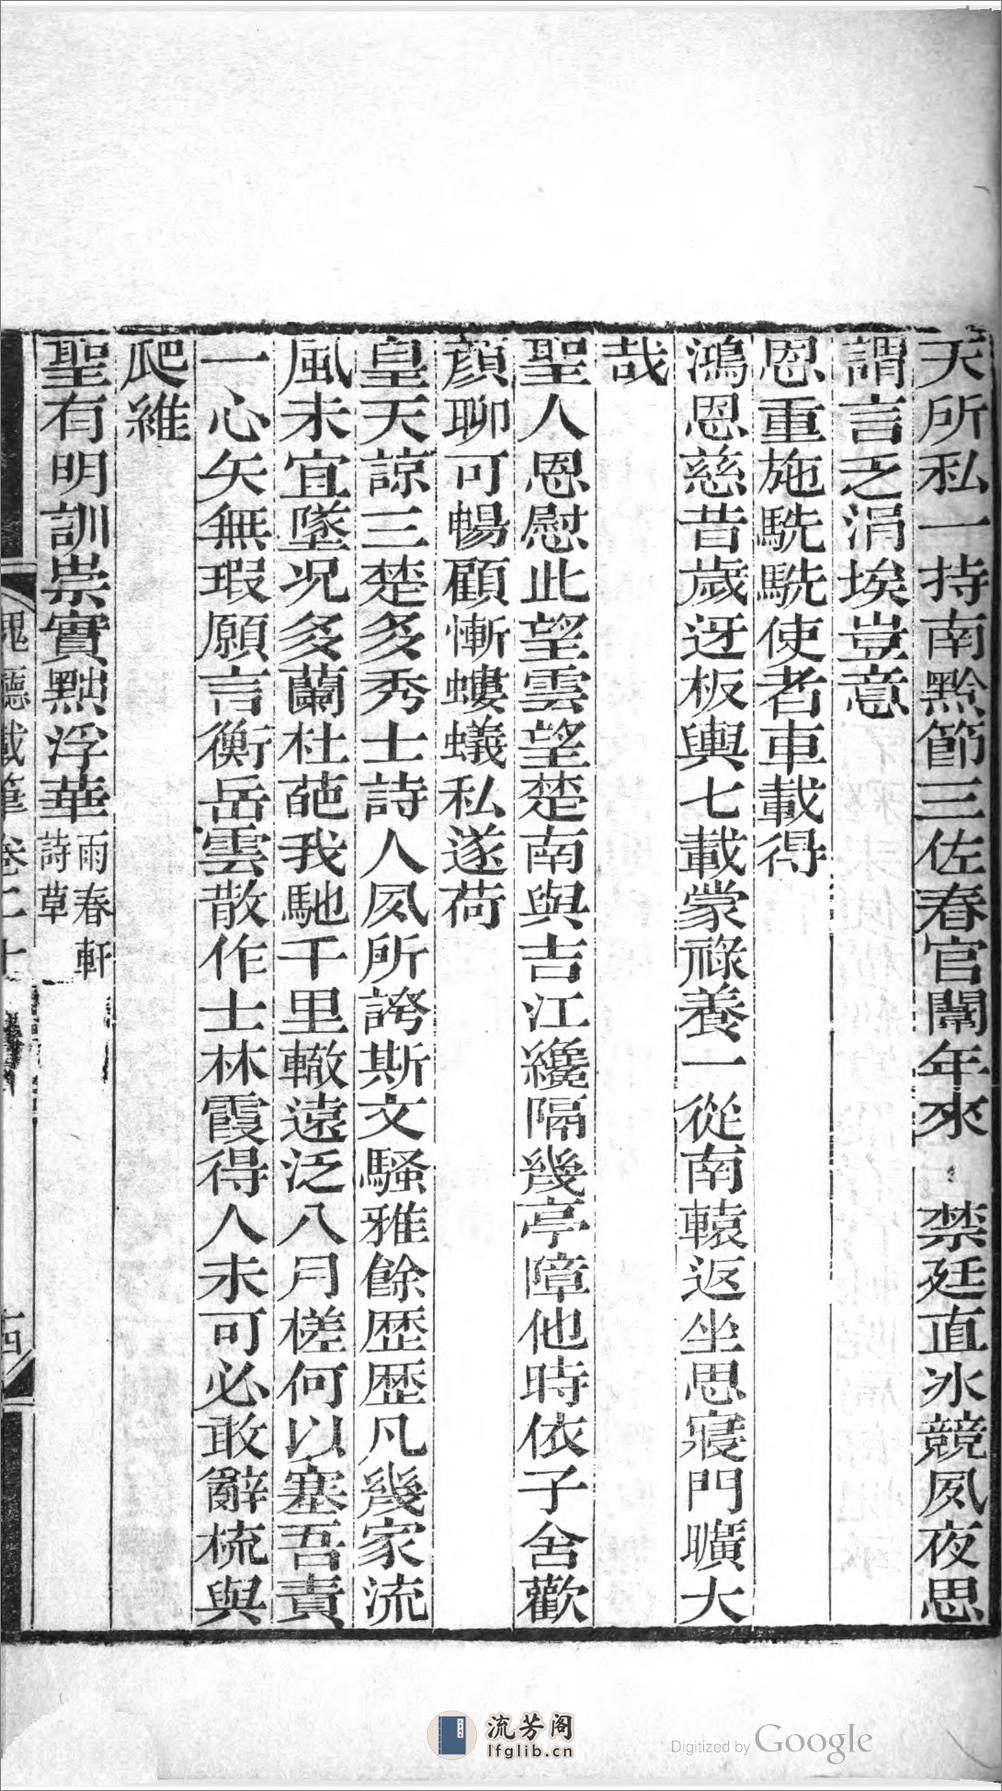 天所私一持南黔節三佐春官闈年來　禁廷直冰競夙夜思
謂言乏涓埃豈意
恩重施駪駪使者車載得
鴻恩慈昔歲迓板輿七載蒙祿養一從南轅返坐思寢門曠大
哉
聖人恩慰此望雲望楚南與吉江纔隔幾亭障他時依子舍歡
顏聊可暢顧慚螻蟻私遂荷
皇天諒三楚多秀士詩人夙所誇斯文騷雅餘歷歷凡幾家流
風未宜墜况多蘭杜葩我馳千里轍遠泛八月槎何以塞吾責
一心矢無瑕願言衡岳雲散作士林霞得人未可必敢辭梳與
爬維
聖有明訓崇實黜浮華雨春軒詩草
槐廳載筆卷二十
十四
流芳阁
lfglib.cn
Digitized by Google